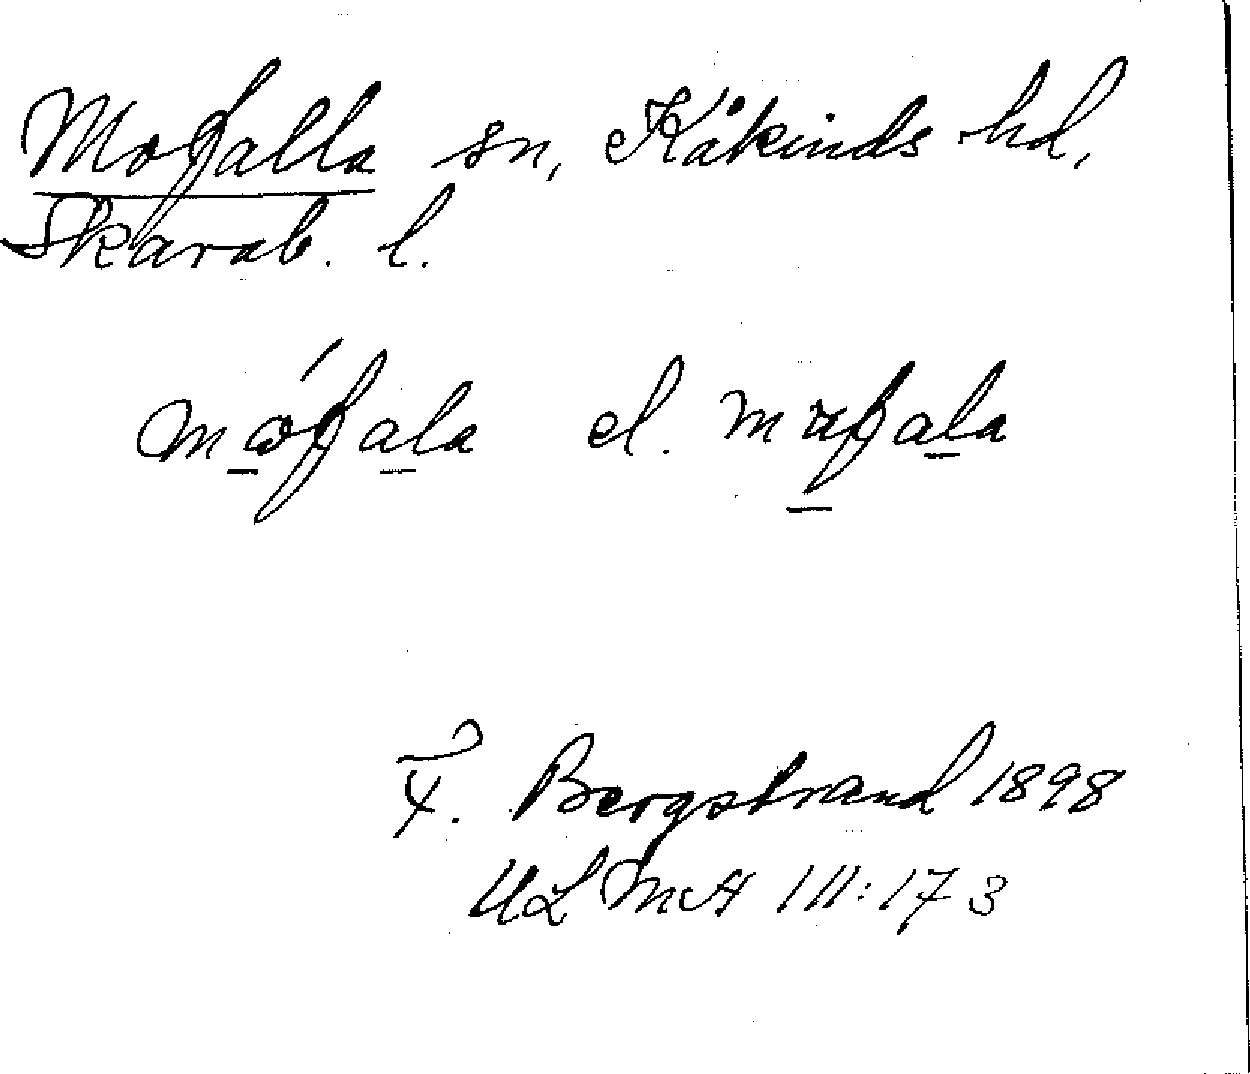 Mofalla sn, Kåkinds hd,
Skarab. l.
mώ̲fa̲la el. mäfa̲la
F. Bergstrand 1898
ULMA 111:173